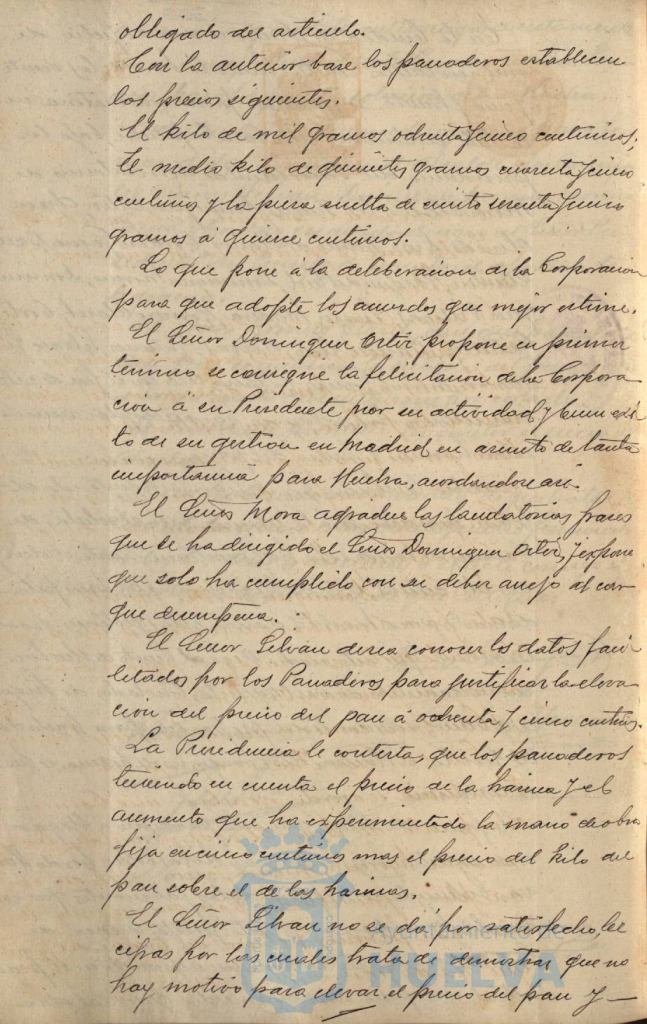 obligado del articulo.
Con la anterior base los panaderos establecen
los precios siguientes.
El kilo de mil gramos ochenta y cinco centimos,
El medio kilo de quinientos gramos cuarenta y cinco
centimos y la pieza suelta de ciento setenta y cinco
gramos á quince centimos.
Lo que pone á la deliberacion de la Corporacion
para que adopte los acuerdos que mejor estime.
El Señor Dominguez Ortiz propone en primer
termino se consigne la felicitacion de la Corpora
cion á su Presidente por su actividad y buen exi
to de su gestion en Madrid en asunto de tanta
importancia para Huelva, acordandose asi.
El Señor Mora agradece las laudatorias frases
que le ha dirigido el Señor Dominguez Ortiz, y expone
que solo ha cumplido con su deber anejo al car
que desempeña.
El Señor Silvan desea conocer los datos faci
litados por los Panaderos para justificar la eleva
cion del precio del pan á ochenta y cinco centims.
La Presidencia le contesta, que los panaderos
teniendo en cuenta el precio de la harina y el
aumento que ha experimentado la mano de obra
fija en cinco centimos mas el precio del kilo del
pan sobre el de las harinas.
El Señor Silvan no se dá por satisfecho, lee
cifras por las cuales trata de demostrar que no
hay motivo para elevar el precio del pan y
Ayuntamiento de
HUELVA